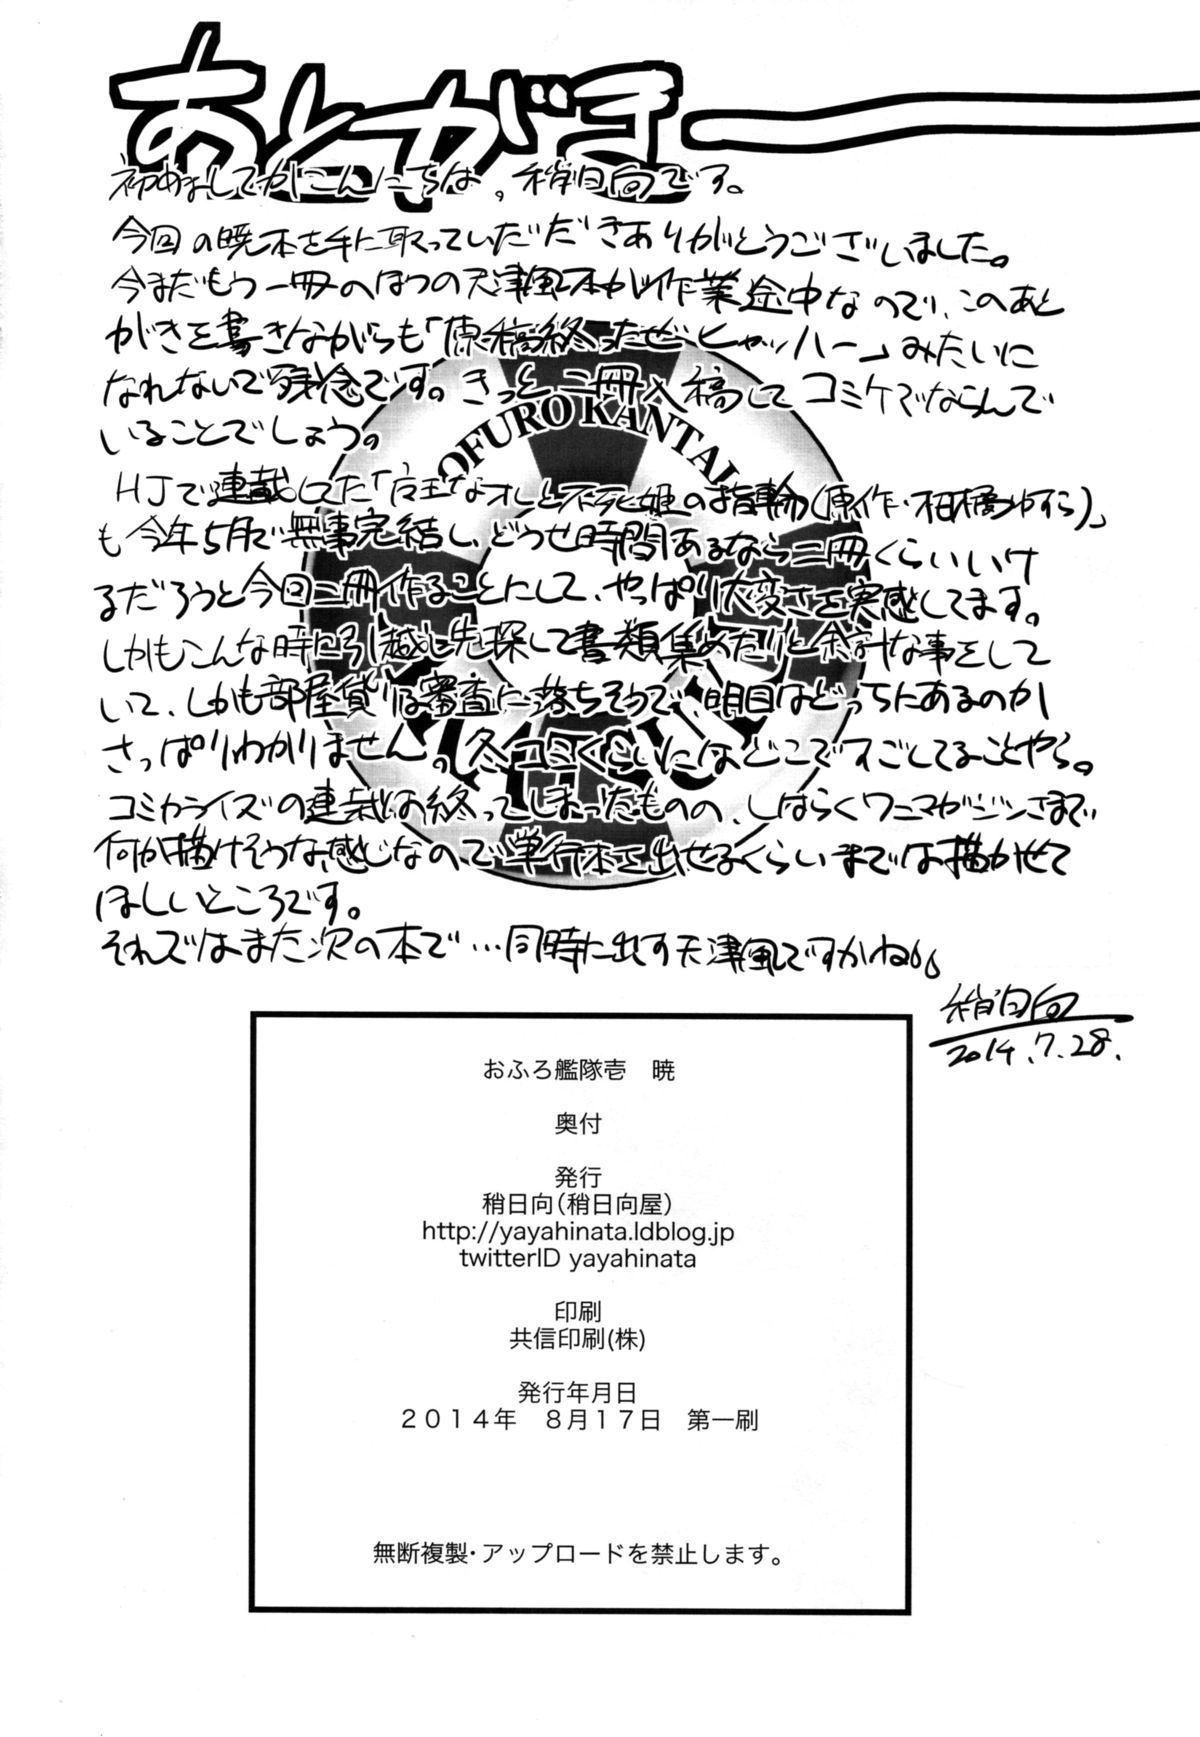 あとがきー
初めましてかこんにちは、稍日向です。
今回の暁本を手に取っていただだきありがとうございました。
今まだもう一冊のほうの天津風本が作業途中なので、このあと
がきを書きながらも「原稿終ったぜーヒャッハー」みたいに
なれないで残念です。きっと二冊入稿してコミケでならんで
いることでしょう。
HJで連載してた「魔王なオレと不死姫の指輪(原作・柑橘ゆすら)」
も今年5月で無事完結し、どうせ時間あるなら二冊くらいいけ
るだろうと今回二冊作ることにして、やっぱり大変さを実感してます。
しかもこんな時に引越し先探して書類集めたりと余計な事をして
いて、しかも部屋貸りる審査に落ちそうで、明日はどっちにあるのか
さっぱりわかりません。冬コミくらいにはどこですごしてることやら。
コミカライズの連載は終ってしまったものの、しばらくワニマガジンさまで
何か描けそうな感じなので単行本で出せるくらいまでは描かせて
ほしいところです。
それではまた次の本で…同時に出す天津風ですかね。
稍日向
2014.7.28.
OFURO KANTAI
おふろ艦隊壱　暁
奥付
発行
稍日向(稍日向屋)
http://yayahinata.ldblog.jp
twitterID yayahinata
印刷
共信印刷(株)
発行年月日
２０１４年　８月１７日　第一刷
無断複製・アップロードを禁止します。